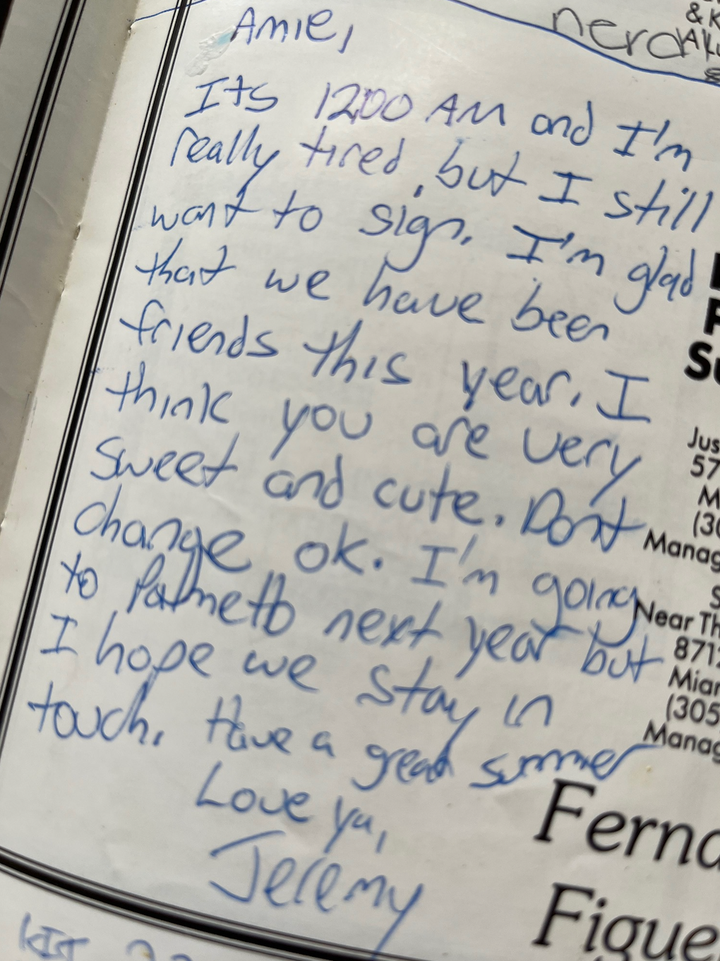 Amie,
Its 12:00 AM and I'm
really tired, but I still
want to sign. I'm glad
that we have been
friends this year. I
think you are very
sweet and cute. Dont
change ok. I'm going
to Palmetto next year but
I hope we stay in
touch. Have a great summer
Love ya,
Jeremy
nerd
& K
Su
Jus
57
M
(30
Manag
S
Near Th
871
Miam
(305
Manag
Ferna
Figue
KIT